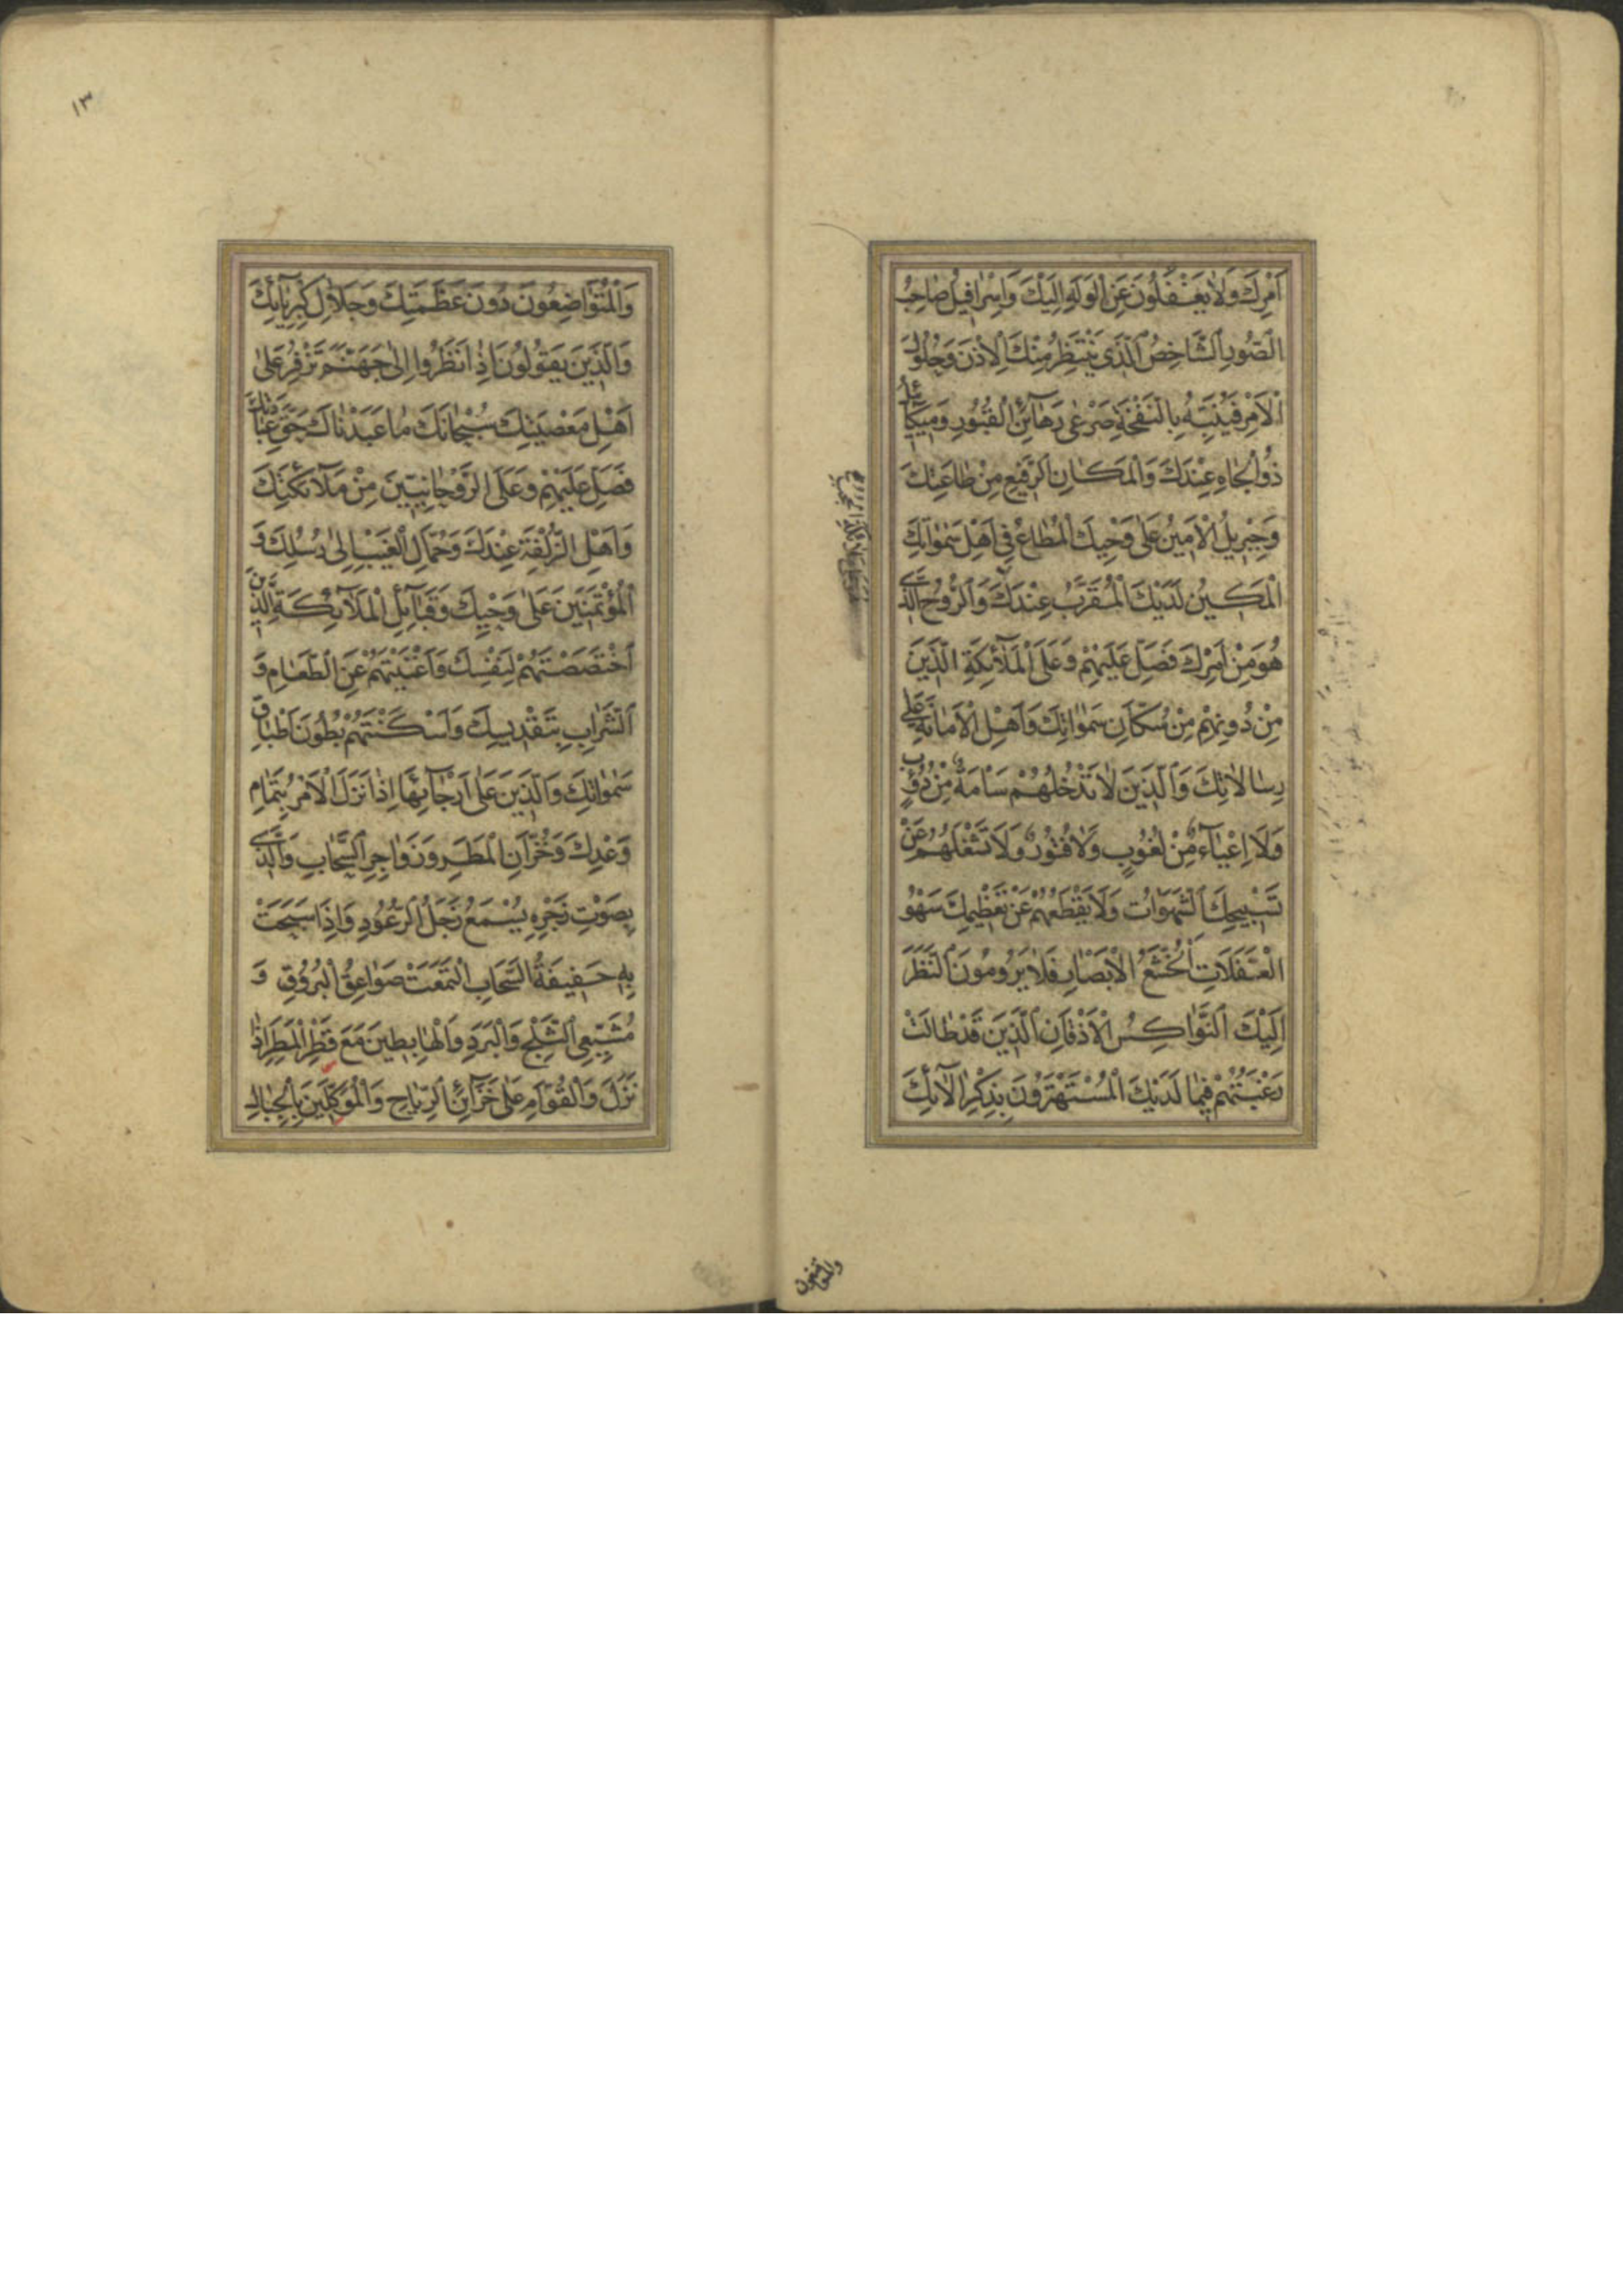 اَمْرِكَ وَلَا يَغْفُلُونَ عَنِ الْوَلَهِ اِلَيْكَ وَاِسْرَافِيلُ صَاحِبُ
الصُّورِ الشَّاخِصُ الَّذِي يَنْتَظِرُ مِنْكَ الْاِذْنَ وَحُلُولَ
الْاَمْرِ فَيُنَبِّهُ بِالنَّفْخَةِ صَرْعٰى رَهَآئِنِ الْقُبُورِ وَمِيكَآئِيلُ
ذُو الْجَاهِ عِنْدَكَ وَالْمَكَانِ الرَّفِيعِ مِنْ طَاعَتِكَ
وَجِبْرِيلُ الْاَمِينُ عَلٰى وَحْيِكَ الْمُطَاعُ فِي اَهْلِ سَمٰوَاتِكَ
الْمَكِينُ لَدَيْكَ الْمُقَرَّبُ عِنْدَكَ وَالرُّوحُ الَّذِي
هُوَ مِنْ اَمْرِكَ فَصَلِّ عَلَيْهِمْ وَعَلَى الْمَلَآئِكَةِ الَّذِينَ
مِنْ دُونِهِمْ مِنْ سُكَّانِ سَمٰوَاتِكَ وَاَهْلِ الْاَمَانَةِ عَلٰى
رِسَالَاتِكَ وَالَّذِينَ لَا تَدْخُلُهُمْ سَأْمَةٌ مِنْ دُؤُبٍ
وَلَا اِعْيَآءٌ مِنْ لُغُوبٍ وَلَا فُتُورٌ وَلَا تَشْغَلُهُمْ عَنْ
تَسْبِيحِكَ الشَّهَوَاتُ وَلَا يَقْطَعُهُمْ عَنْ تَعْظِيمِكَ سَهْوُ
الْغَفَلَاتِ الْخُشَّعُ الْاَبْصَارِ فَلَا يَرُومُونَ النَّظَرَ
اِلَيْكَ النَّوَاكِسُ الْاَذْقَانِ الَّذِينَ قَدْ طَالَتْ
رَغْبَتُهُمْ فِيمَا لَدَيْكَ الْمُسْتَهْتَرُونَ بِذِكْرِ اٰلَآئِكَ
١٣
وَالْمُتَوَاضِعُونَ دُونَ عَظَمَتِكَ وَجَلَالِ كِبْرِيَآئِكَ
وَالَّذِينَ يَقُولُونَ اِذَا نَظَرُوا اِلٰى جَهَنَّمَ تَزْفِرُ عَلٰى
اَهْلِ مَعْصِيَتِكَ سُبْحَانَكَ مَا عَبَدْنَاكَ حَقَّ عِبَادَتِكَ
فَصَلِّ عَلَيْهِمْ وَعَلَى الرَّوْحَانِيِّينَ مِنْ مَلَآئِكَتِكَ
وَاَهْلِ الزُّلْفَةِ عِنْدَكَ وَحُمَّالِ الْغَيْبِ اِلٰى رُسُلِكَ وَ
الْمُؤْتَمَنِينَ عَلٰى وَحْيِكَ وَقَبَآئِلِ الْمَلَآئِكَةِ الَّذِينَ
اخْتَصَصْتَهُمْ لِنَفْسِكَ وَاَغْنَيْتَهُمْ عَنِ الطَّعَامِ وَ
الشَّرَابِ بِتَقْدِيسِكَ وَاَسْكَنْتَهُمْ بُطُونَ اَطْبَاقِ
سَمٰوَاتِكَ وَالَّذِينَ عَلٰى اَرْجَآئِهَا اِذَا نَزَلَ الْاَمْرُ بِتَمَامِ
وَعْدِكَ وَخُزَّانِ الْمَطَرِ وَزَوَاجِرِ السَّحَابِ وَالَّذِي
بِصَوْتِ زَجْرِهِ يُسْمَعُ زَجَلُ الرُّعُودِ وَاِذَا سَبَحَتْ
بِهِ حَفِيفَةُ السَّحَابِ الْتَمَعَتْ صَوَاعِقُ الْبُرُوقِ وَ
مُشَيِّعِي الثَّلْجِ وَالْبَرَدِ وَالْهَابِطِينَ مَعَ قَطْرِ الْمَطَرِ اِذَا
نَزَلَ وَالْقُوَّامِ عَلٰى خَزَآئِنِ الرِّيَاحِ وَالْمُوَكَّلِينَ بِالْجِبَالِ